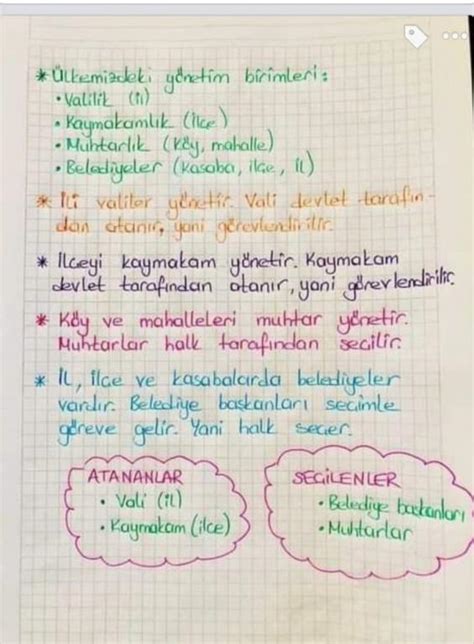 * Ülkemizdeki yönetim birimleri:
• Valilik (İl)
• Kaymakamlık (İlçe)
• Muhtarlık (Köy, mahalle)
• Belediyeler (Kasaba, ilçe, il)
* İli valiler yönetir. Vali devlet tarafın-
dan atanır, yani görevlendirilir.
* İlçeyi kaymakam yönetir. Kaymakam
devlet tarafından atanır, yani görevlendirilir.
* Köy ve mahalleleri muhtar yönetir.
Muhtarlar halk tarafından seçilir.
* İl, ilçe ve kasabalarda belediyeler
vardır. Belediye başkanları seçimle
göreve gelir. Yani halk seçer.
ATANANLAR
• Vali (il)
• Kaymakam (ilçe)
SEÇİLENLER
• Belediye başkanları
• Muhtarlar